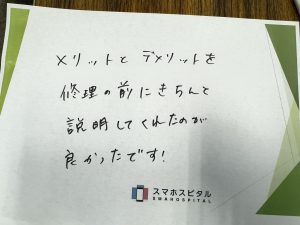 メリットと デメリットを
修理の前にきちんと
説明してくれたのが
良かったです!
スマホスピタル
SMAHOSPITAL